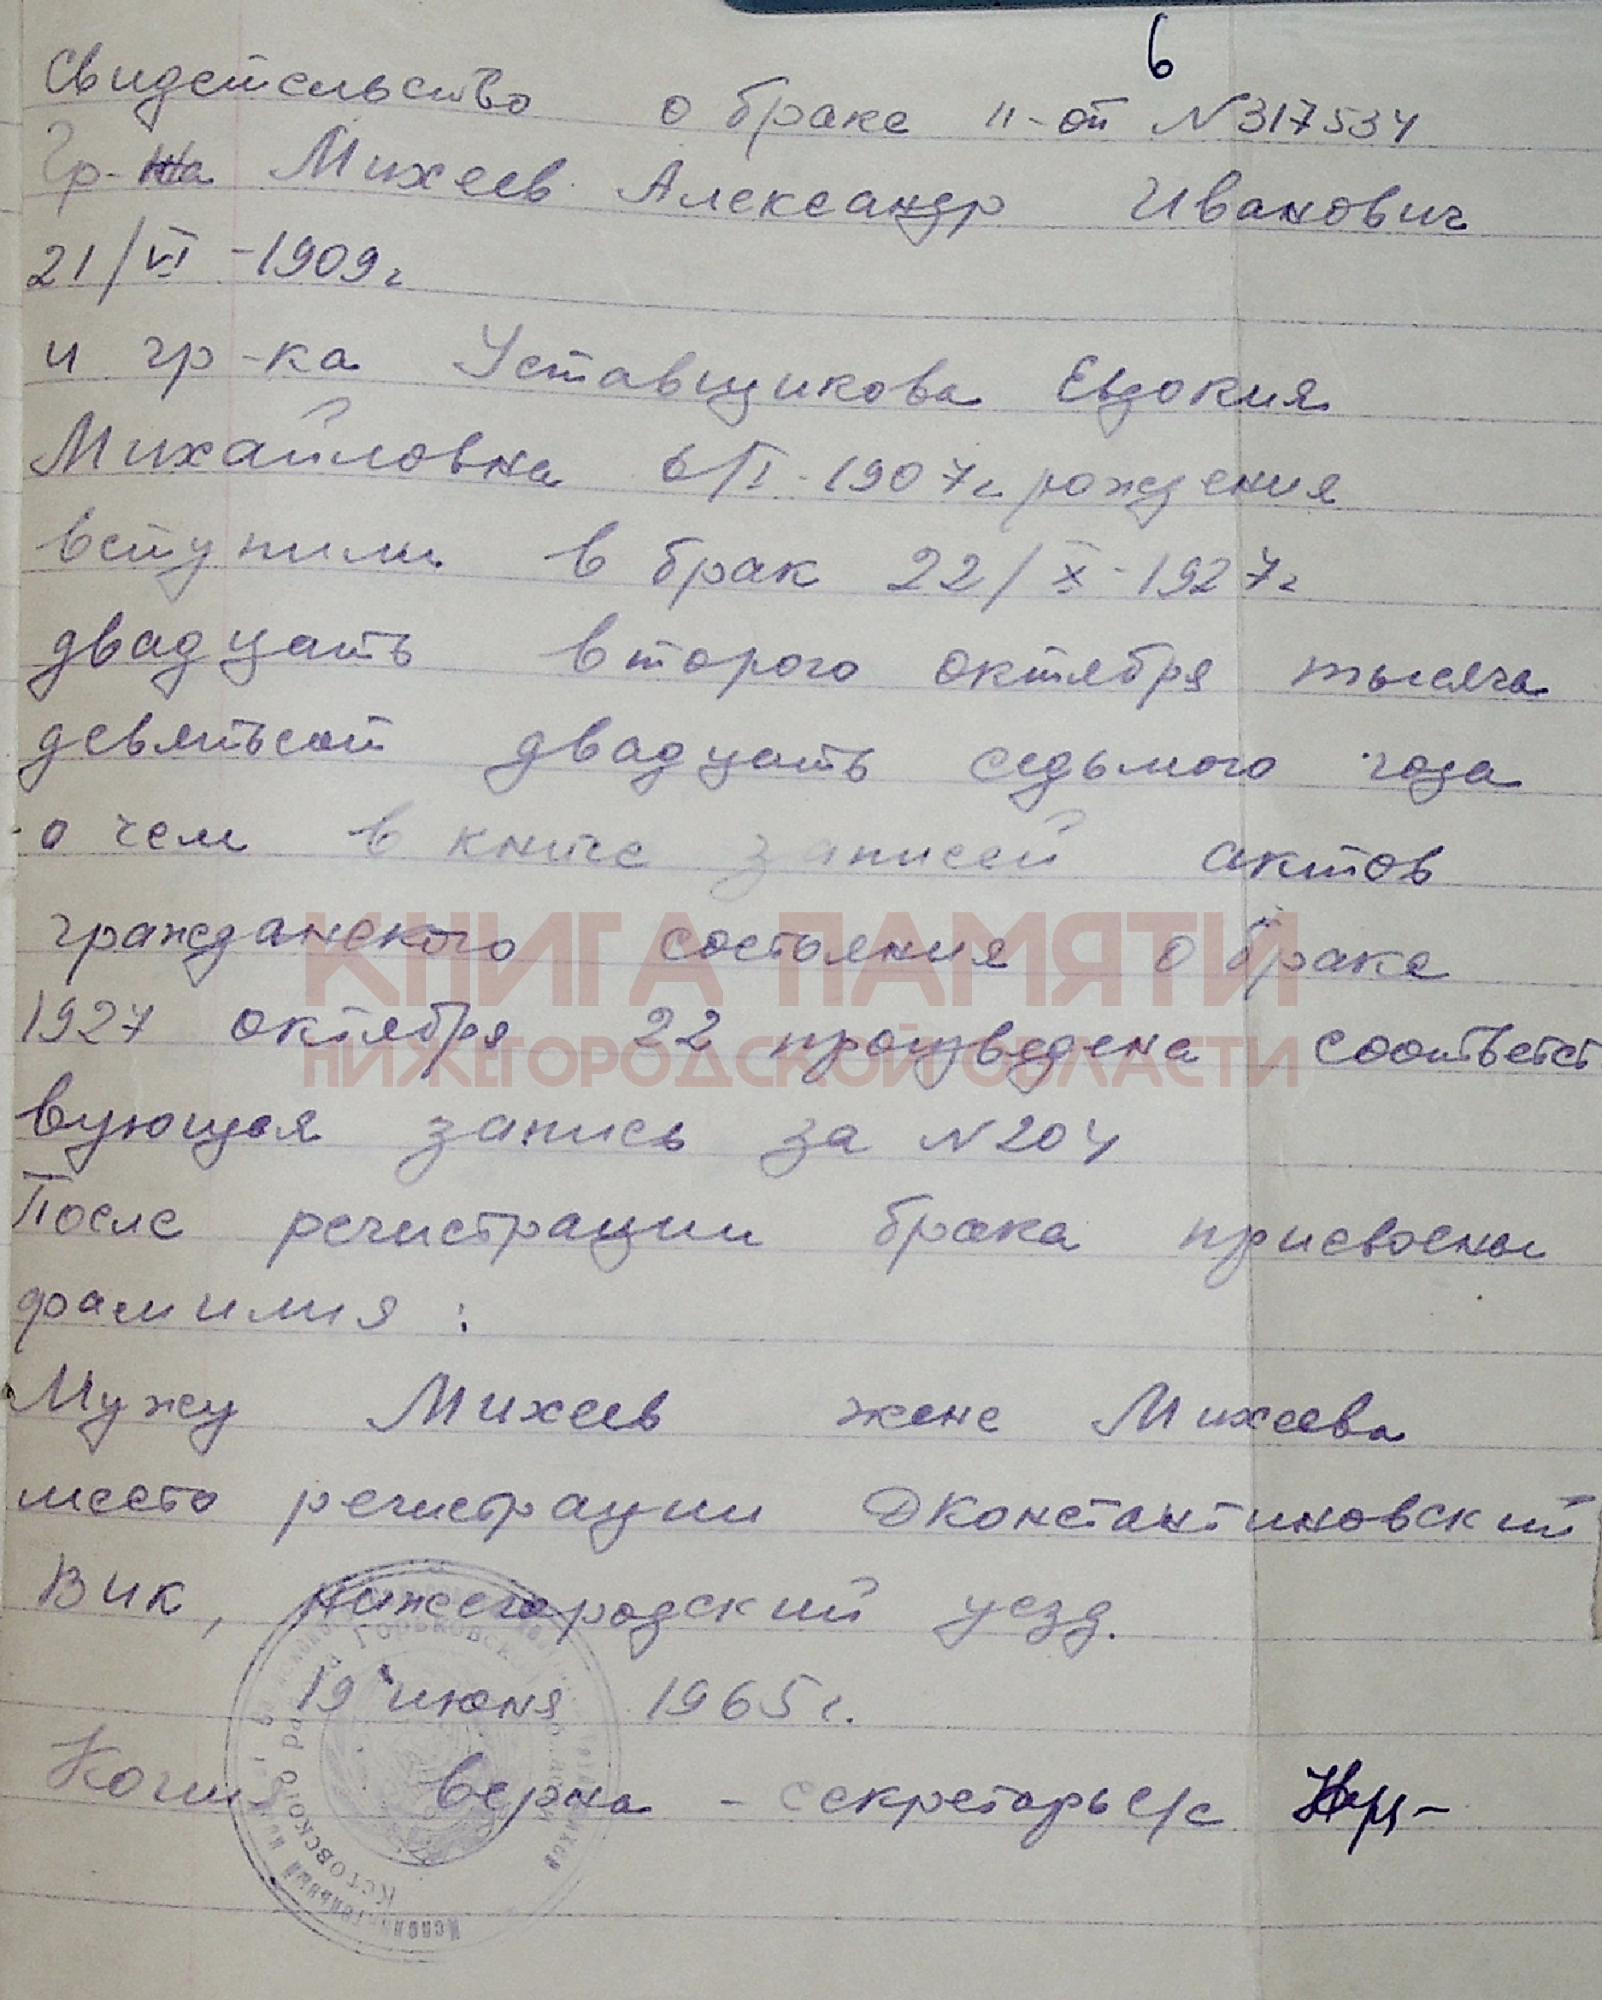 6
Свидетельство о браке II-от N317534
Гр-на Михеев Александр Иванович
21/VI-1909г
и гр-ка Уставщикова Евдокия
Михайловна 6/I-1907г рождения
вступили в брак 22/X-1927г
двадцать второго октября тысяча
девятьсот двадцать седьмого года
о чем в книге записей актов
гражданского состояния о браке
КНИГА ПАМЯТИ
1927 октября 22 произведена соответст
НИЖЕГОРОДСКОЙ ОБЛАСТИ
вующая запись за N204
После регистрации брака присвоены
фамилия :
Мужу Михеев жене Михеева
место регистрации ДКонстантиновский
Вик, нижегородский уезд.
19 июня 1965г.
Копия верна - секретарь с/с
Кстовского
Горьковской